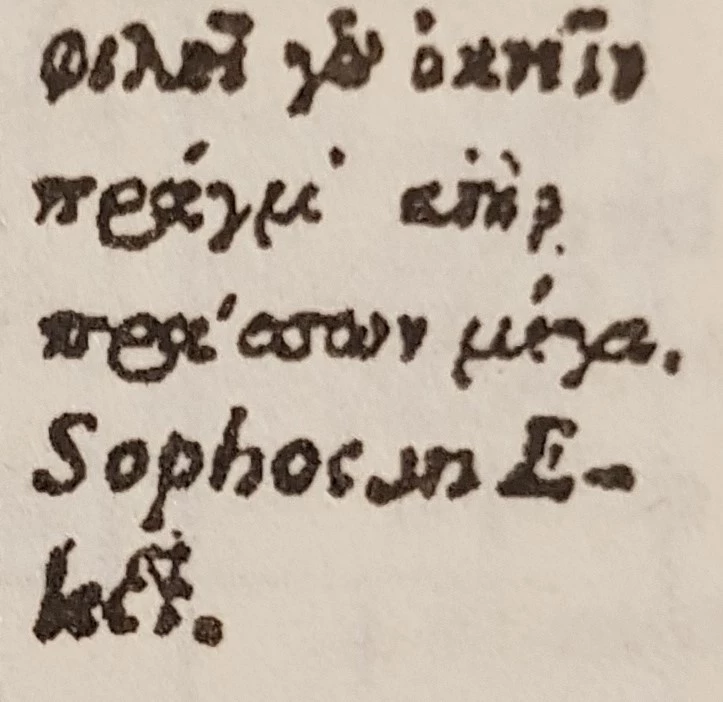 φιλεῖ γὰρ ὀκνεῖν
πράγμ' ἀνὴρ
πράσσων μέγα.
Sophoc. in E-
lect.